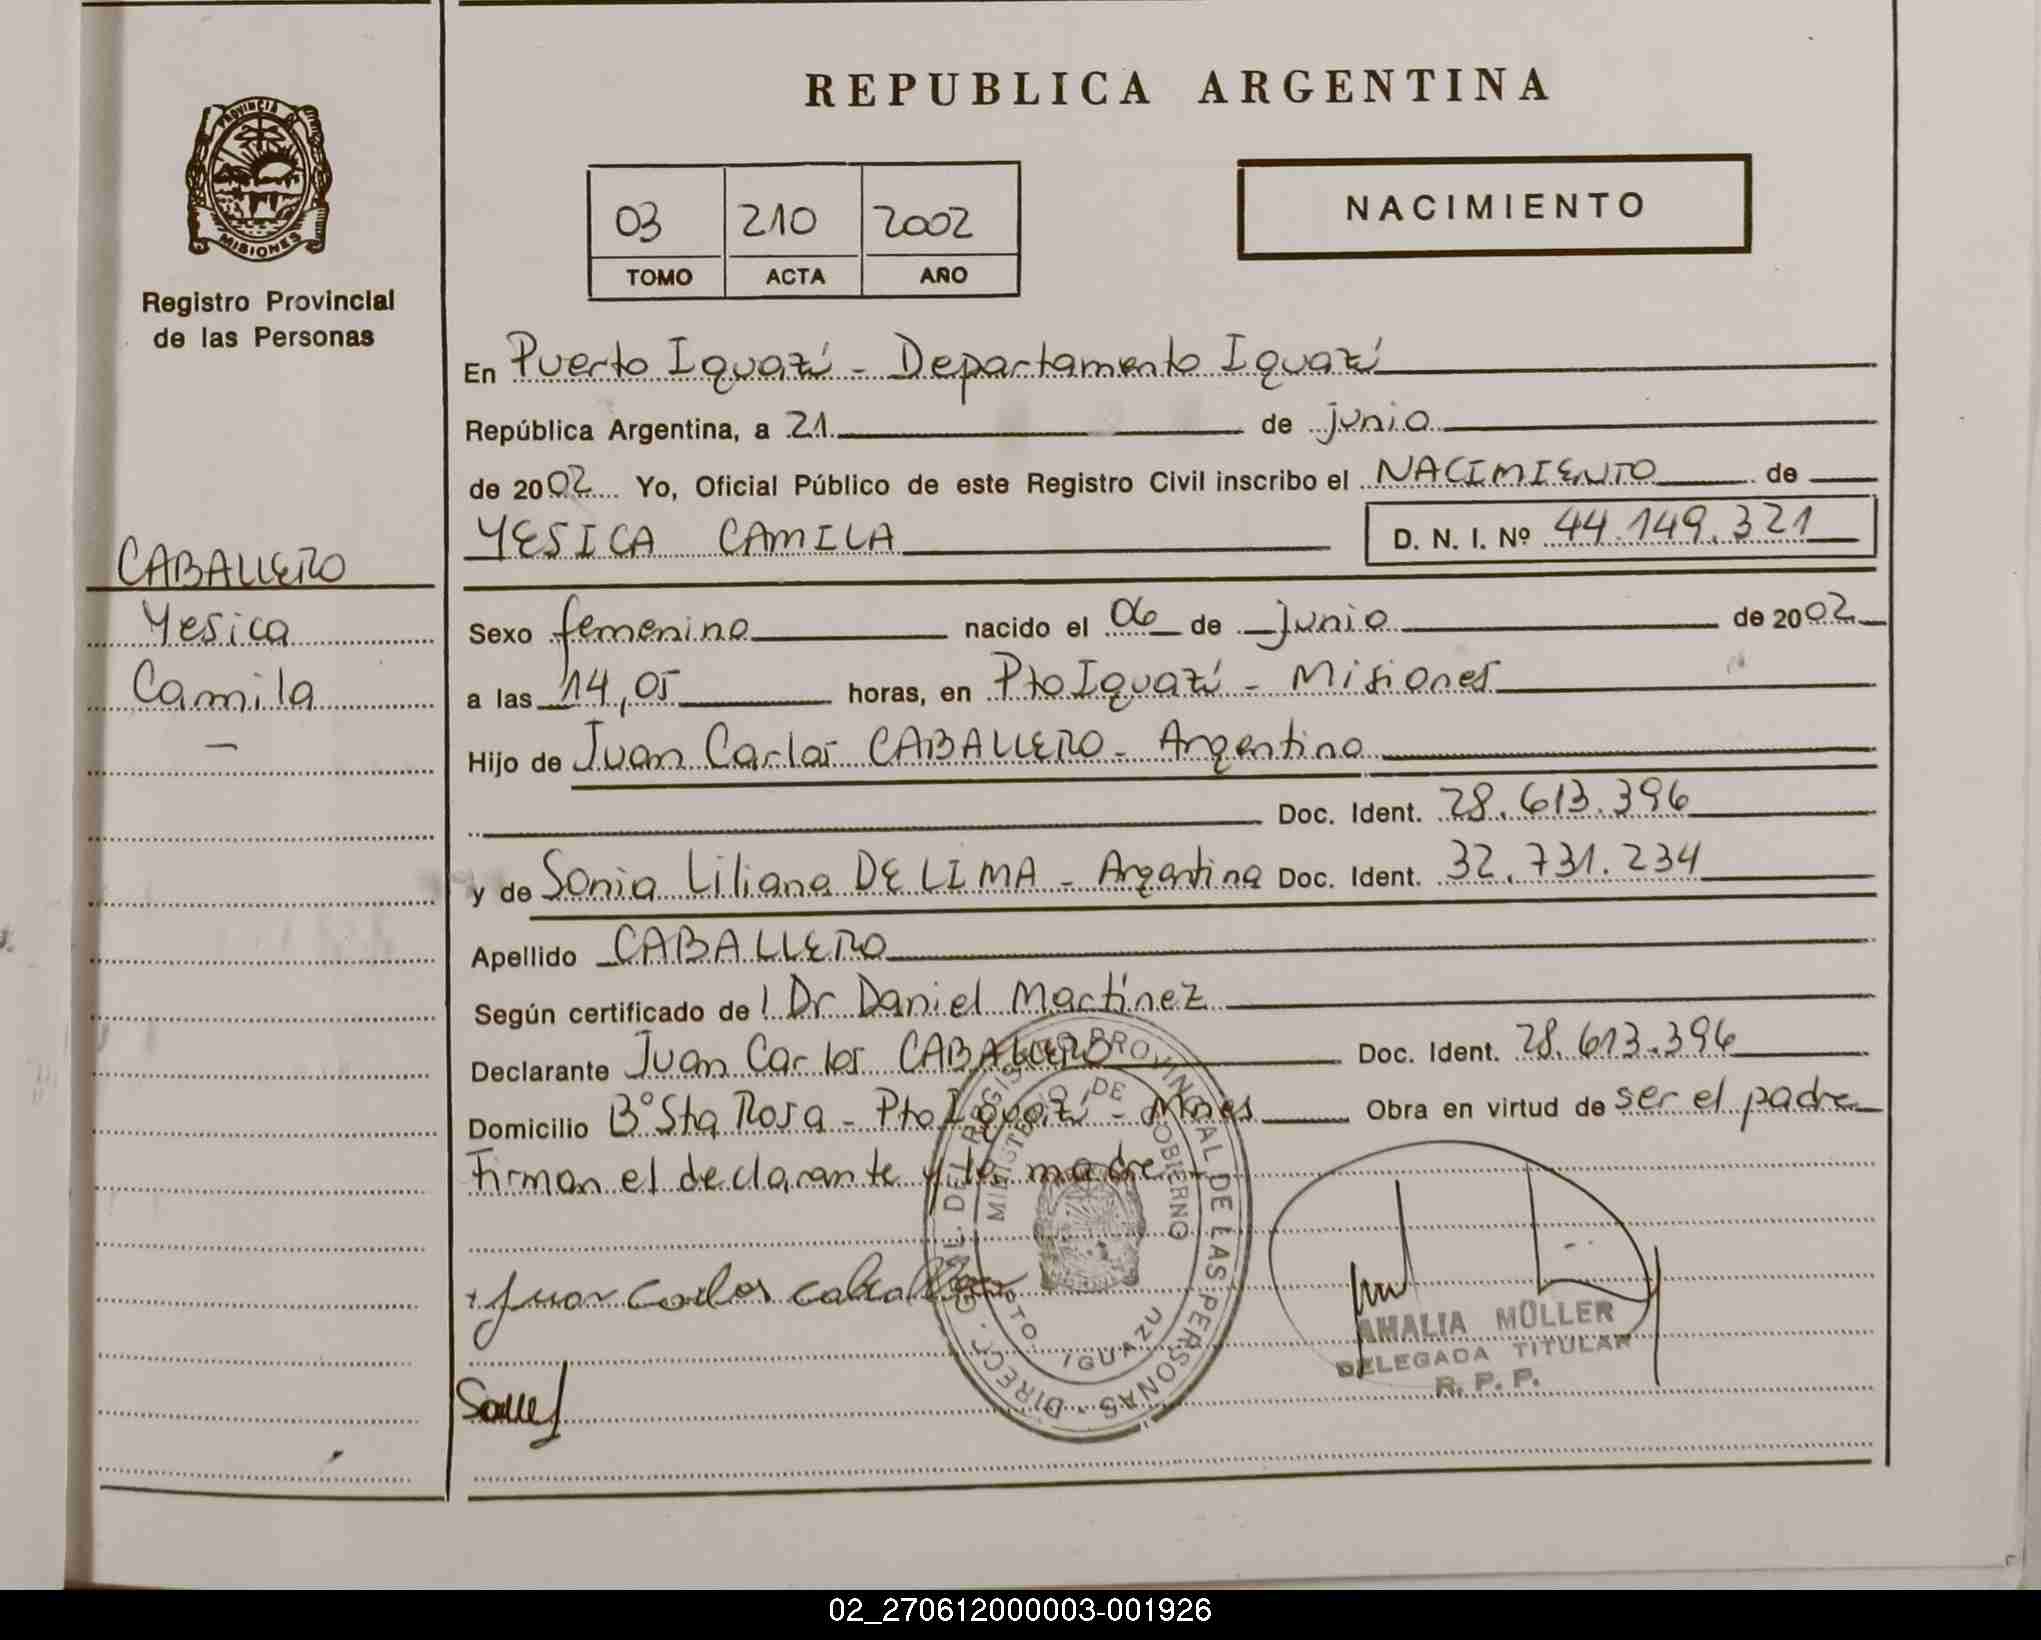 REPUBLICA ARGENTINA
PROVINCIA DE
MISIONES
Registro Provincial
de las Personas
03 210 2002
TOMO ACTA AÑO
NACIMIENTO
En Puerto Iguazú - Departamento Iguazú
República Argentina, a 21 de junio
de 2002 Yo, Oficial Público de este Registro Civil inscribo el NACIMIENTO de
YESICA CAMILA D. N. I. Nº 44.149.321
CABALLERO
Yesica
Camila
Sexo femenino nacido el 06 de junio de 2002
a las 14,05 horas, en Pto Iguazú - Misiones
Hijo de Juan Carlos CABALLERO - Argentino
Doc. Ident. 28.613.396
y de Sonia Liliana DE LIMA - Argentina Doc. Ident. 32.731.234
Apellido CABALLERO
Según certificado de l Dr Daniel Martínez
Declarante Juan Carlos CABALLERO Doc. Ident. 28.613.396
Domicilio Bº Sta Rosa - Pto Iguazú - Mnes Obra en virtud de ser el padre
Firman el declarante y la madre -
Juan Carlos caballero
DIRECC. GRAL. DEL REGISTRO PROVINCIAL DE LAS PERSONAS
MINISTERIO DE GOBIERNO
PTO. IGUAZU
AMALIA MÜLLER
DELEGADA TITULAR
R. P. P.
02_270612000003-001926